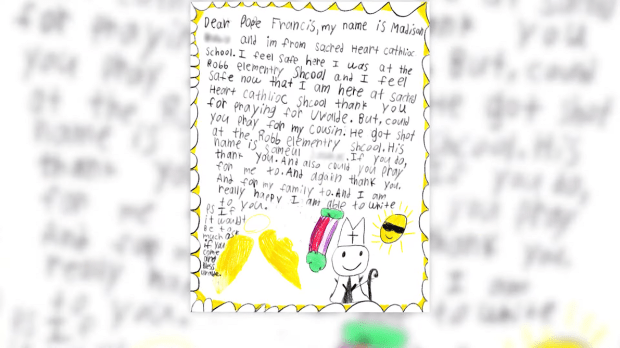 Dear Pope Francis, my name is Madison
and im from sacred Heart cathlioc
school. I feel safe here I was at the
Robb elementry Shcool and I feel
safe now that I am here at sacred
Heart cathlioc shcool thank you
for praying for uvalde. But, could
you pray for my cousin. He got shot
at the Robb elementry shcool. His
name is Sameul . If you do,
thank you. And also could you pray
for me to. And again thank you.
And for my family to. And I am
really happy I am able to write
to you.
PS If
it wouldnt
be to
much
if you
come
and
Bless
uvalde.